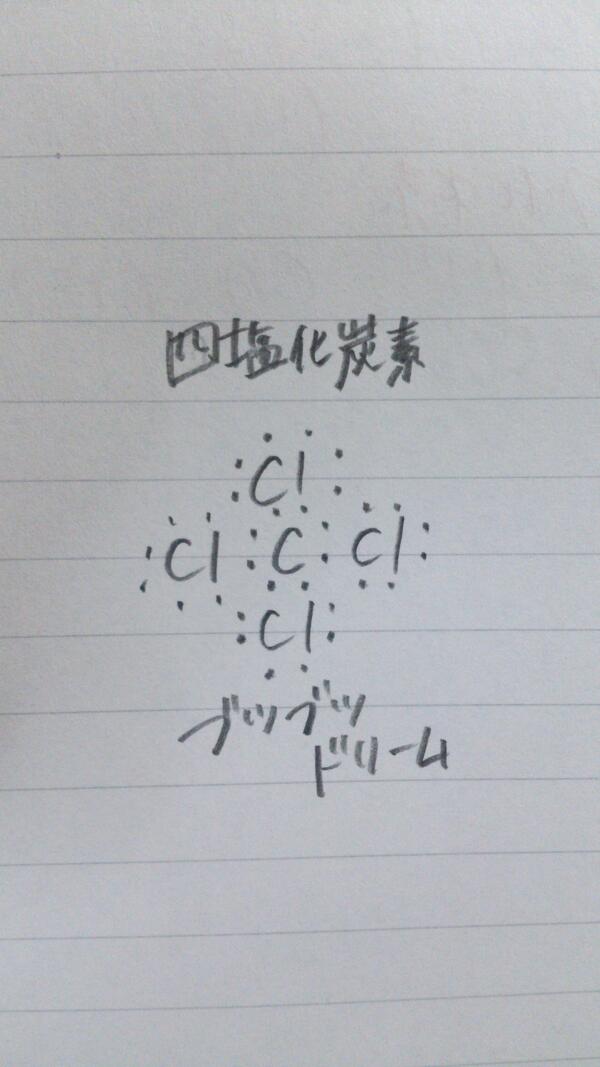 四塩化炭素
Cl
Cl C Cl
Cl
ブツブツ
ドリーム